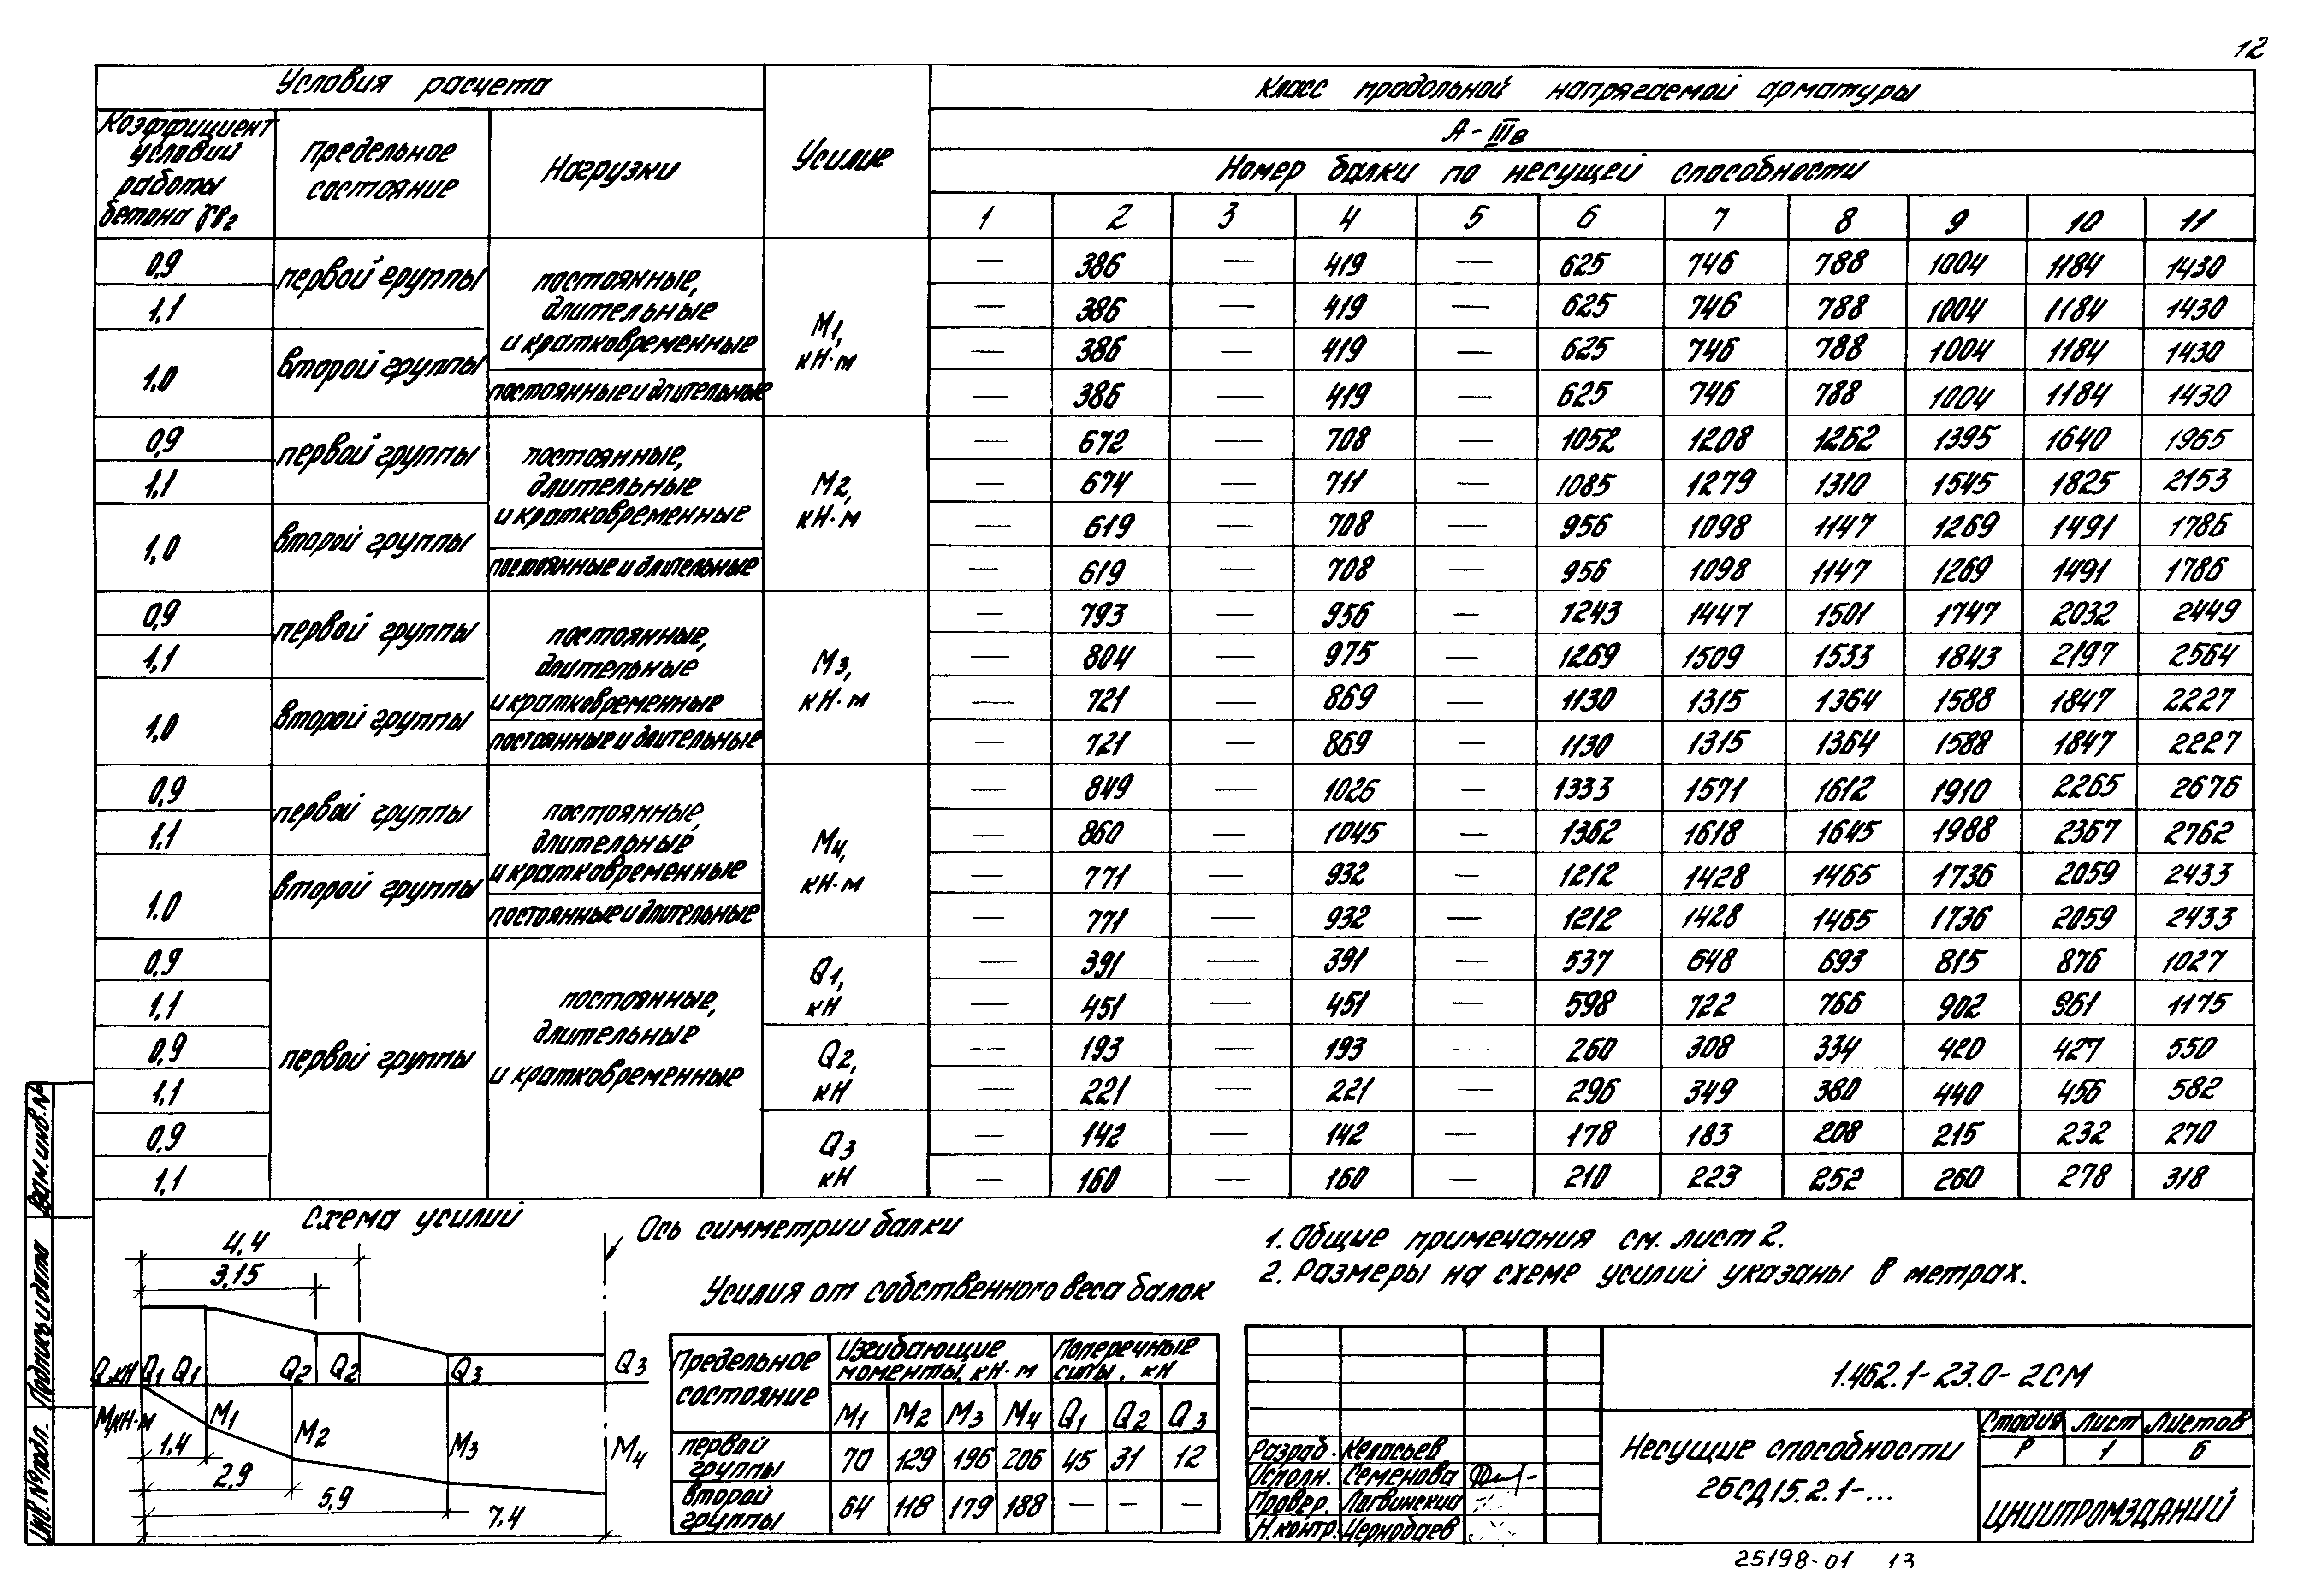 12
Условия расчета
Усилие
Класс продольной напрягаемой арматуры
Коэффициент условий работы бетона γв2
Предельное состояние
Нагрузки
А-IIIв
Номер балки по несущей способности
1 2 3 4 5 6 7 8 9 10 11
0,9 первой группы постоянные, длительные и кратковременные М1, кН·м — 386 — 419 — 625 746 788 1004 1184 1430
1,1 — 386 — 419 — 625 746 788 1004 1184 1430
1,0 второй группы — 386 — 419 — 625 746 788 1004 1184 1430
постоянные и длительные — 386 — 419 — 625 746 788 1004 1184 1430
0,9 первой группы постоянные, длительные и кратковременные М2, кН·м — 672 — 708 — 1052 1208 1262 1395 1640 1965
1,1 — 674 — 711 — 1085 1279 1310 1545 1825 2153
1,0 второй группы — 619 — 708 — 956 1098 1147 1269 1491 1786
постоянные и длительные — 619 — 708 — 956 1098 1147 1269 1491 1786
0,9 первой группы постоянные, длительные и кратковременные М3, кН·м — 793 — 956 — 1243 1447 1501 1747 2032 2449
1,1 — 804 — 975 — 1269 1509 1533 1843 2197 2564
1,0 второй группы — 721 — 869 — 1130 1315 1364 1588 1847 2227
постоянные и длительные — 721 — 869 — 1130 1315 1364 1588 1847 2227
0,9 первой группы постоянные, длительные и кратковременные М4, кН·м — 849 — 1026 — 1333 1571 1612 1910 2265 2676
1,1 — 860 — 1045 — 1362 1618 1645 1988 2367 2762
1.0 второй группы — 771 — 932 — 1212 1428 1465 1736 2059 2433
постоянные и длительные — 771 — 932 — 1212 1428 1465 1736 2059 2433
0,9 первой группы постоянные, длительные и кратковременные Q1, кН — 391 — 391 — 537 648 693 815 876 1027
1,1 — 451 — 451 — 598 722 766 902 961 1175
0,9 Q2, кН — 193 — 193 — 260 308 334 420 427 550
1,1 — 221 — 221 — 296 349 380 440 456 582
0,9 Q3 кН — 142 — 142 — 178 183 208 215 232 270
1,1 — 160 — 160 — 210 223 252 260 278 318
Схема усилий
Ось симметрии балки
4,4
3,15
Q,кН Q1 Q1 Q2 Q2 Q3 Q3
М,кН·м М1 М2 М3 М4
1,4
2,9
5,9
7,4
Усилия от собственного веса балок
Предельное состояние
Изгибающие моменты, кН·м
Поперечные силы, кН
М1 М2 М3 М4 Q1 Q2 Q3
первой группы 70 129 196 206 45 31 12
второй группы 64 118 179 188 — — —
1. Общие примечания см. лист 2.
2. Размеры на схеме усилий указаны в метрах.
1.462.1-23.0-2СМ
Разраб. Келасьев
Исполн. Семенова
Провер. Лагвинский
Н.контр. Чернобаев
Несущие способности
2БСД15.2.1-...
Стадия Лист Листов
Р 1 6
ЦНИИПРОМЗДАНИЙ
Инв.№подл. Подпись и дата Взам.инв.№
25198-01 13